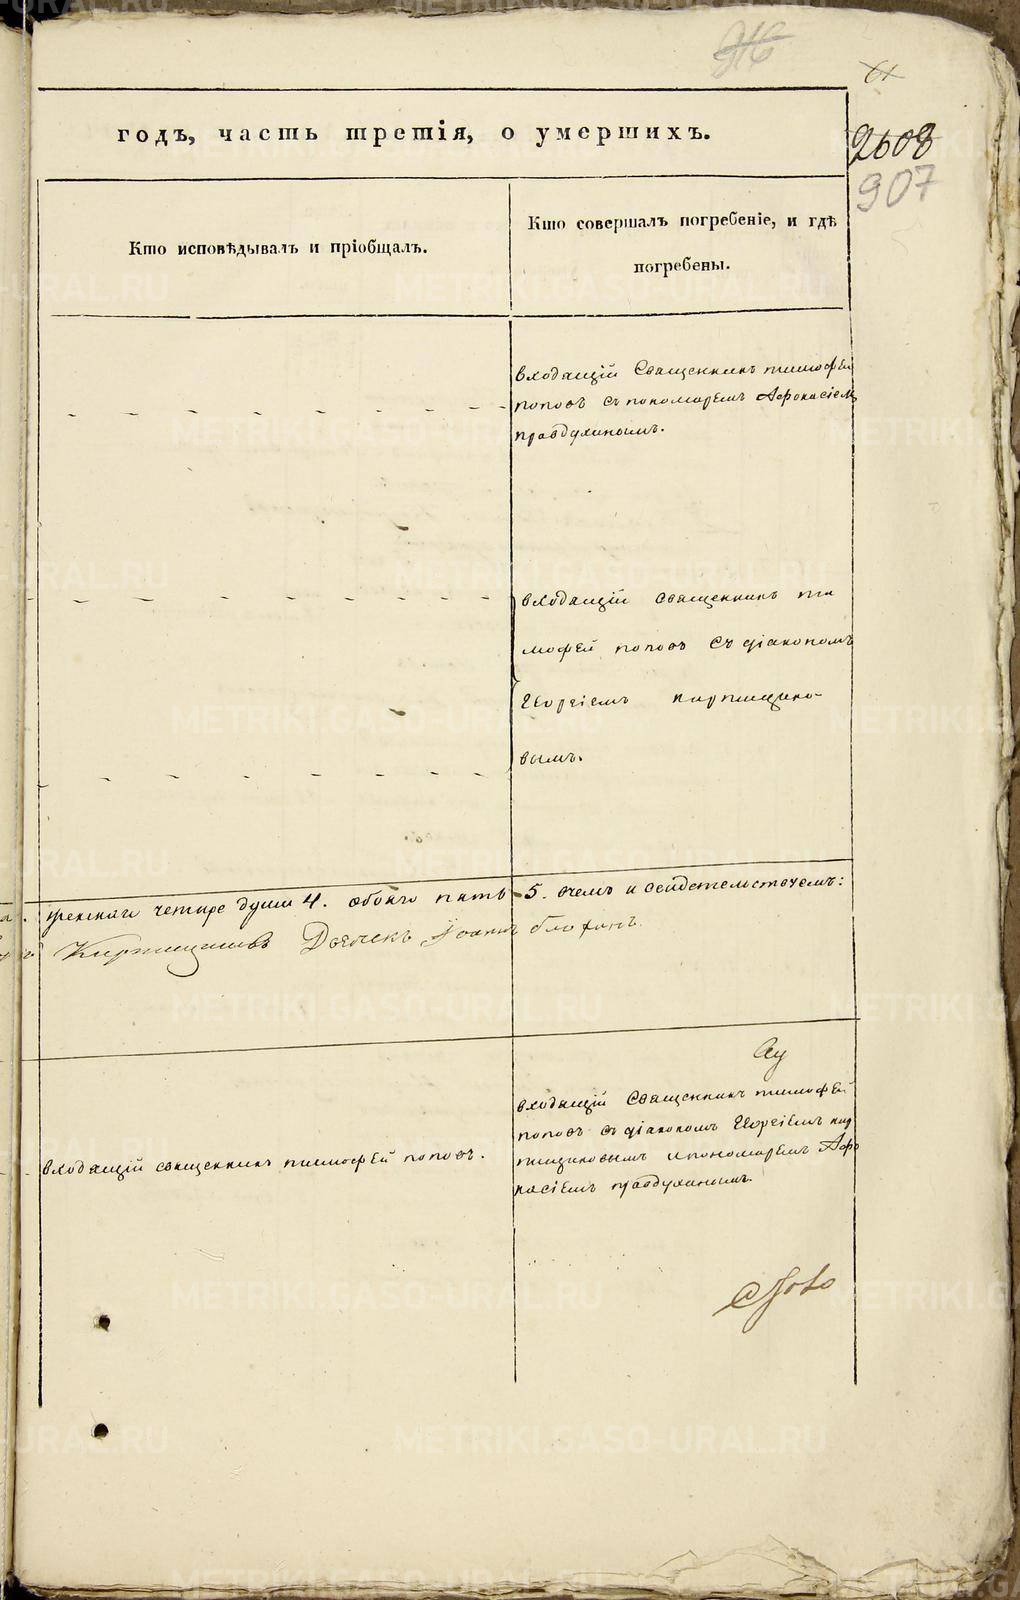 916
61
годъ, часть третія, о умершихъ.
2608
907
Кто исповѣдывалъ и пріобщалъ.
Кто совершалъ погребеніе, и гдѣ
погребены.
входящій Священникъ тимофей
поповъ съ пономаремъ Афонасіемъ
правдухинымъ.
входящій священникъ ти
мофей поповъ съ діакономъ
Георгіемъ кирпищико-
вымъ.
женскаго четыре души 4. обоего пять 5. очемъ и свидетельствуемъ:
Іоаннъ
входящій Священникъ тимофей
поповъ съ діакономъ Георгіемъ кир
пищиковымъ и пономаремъ Афо
насіемъ правдухинымъ.
входящій священникъ тимофей поповъ.
METRIKI.GASO-URAL.RU